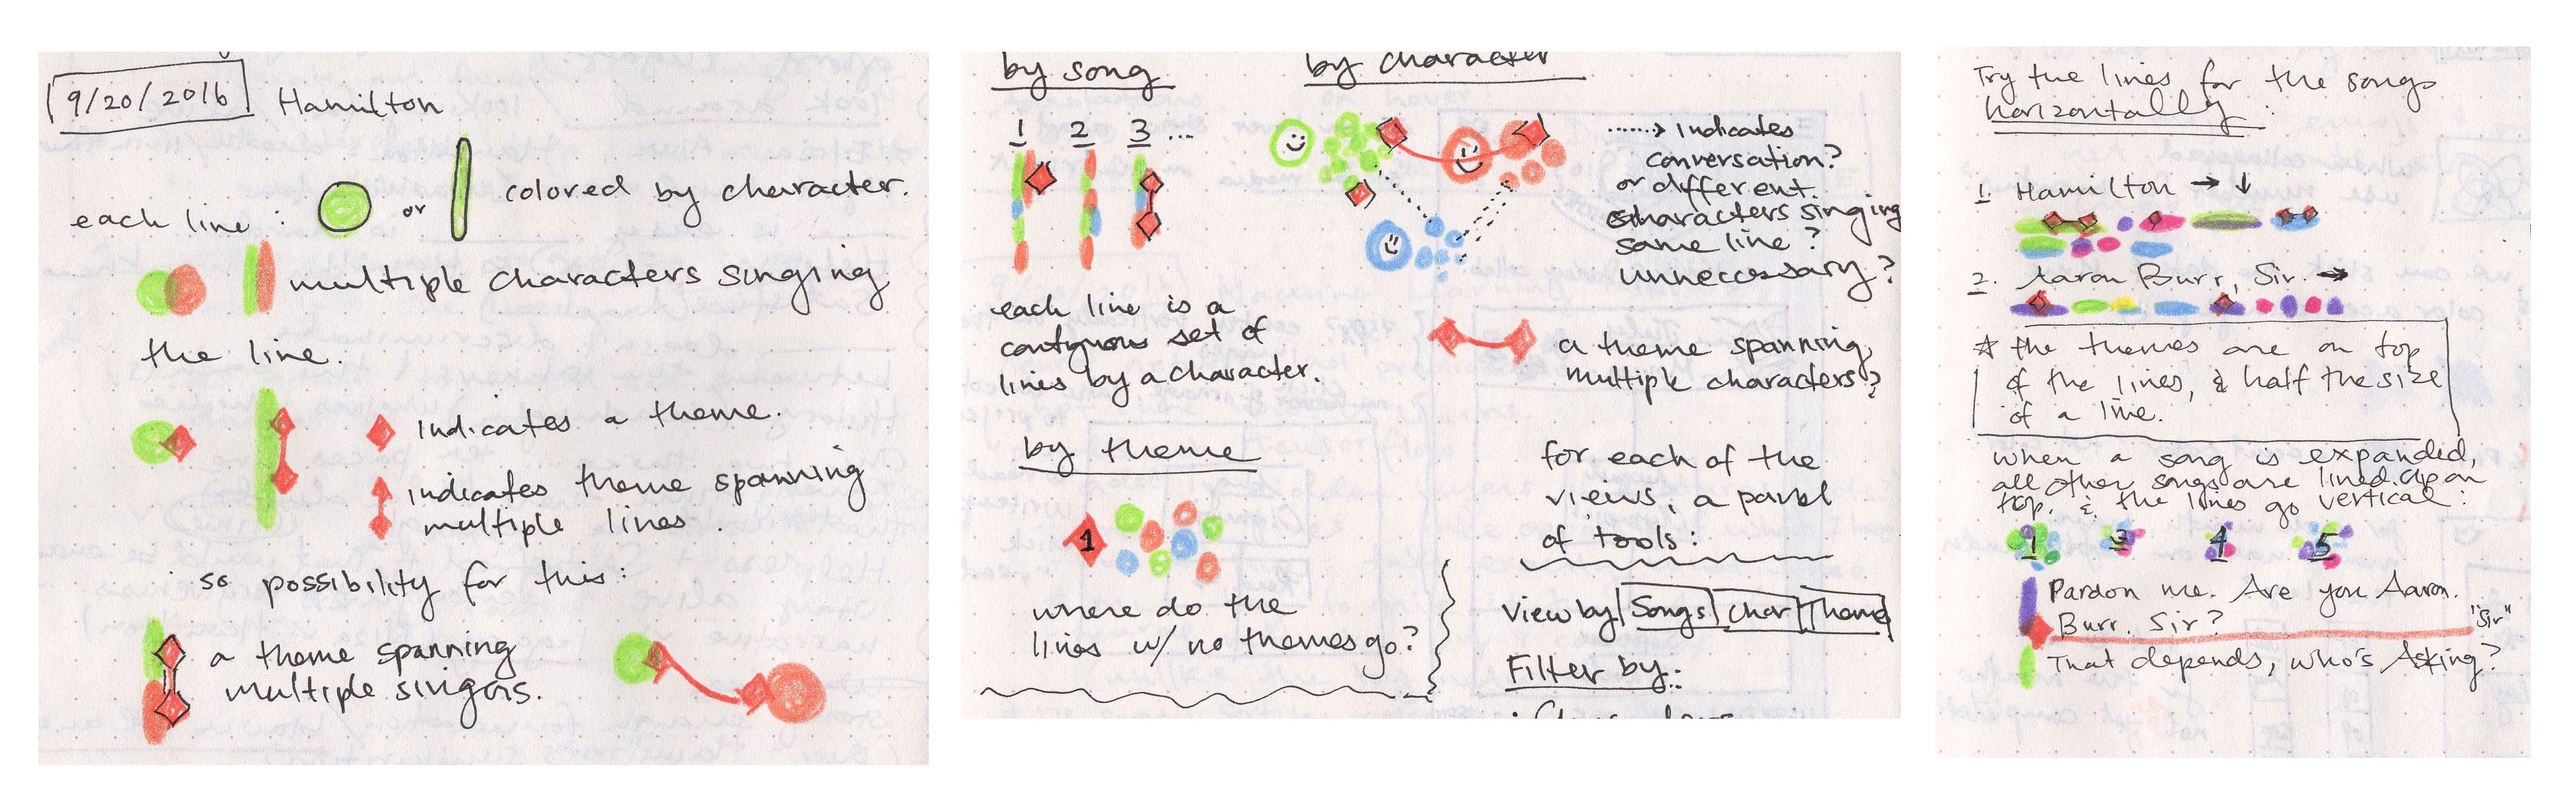 9/20/2016 Hamilton
each line: or colored by character.
multiple characters singing
the line.
indicates a theme.
indicates theme spanning
multiple lines.
so possibility for this:
a theme spanning
multiple singers.
by song
1 2 3 ...
each line is a
contiguous set of
lines by a character.
by character
indicates
conversation?
or different
characters singing
same line?
unneccessary?
a theme spanning
multiple characters?
by theme
1
where do the
lines w/ no themes go?
for each of the
views, a panel
of tools:
view by Songs Char Theme
Filter by:
Try the lines for the songs
horizontally:
1. Hamilton → ↓
2. Aaron Burr, Sir. →
* the themes are on top
of the lines, & half the size
of a line.
when a song is expanded,
all other songs are lined up on
top. & the lines go vertical:
1 3 4 5
Pardon me. Are you Aaron.
Burr. Sir? "Sir"
That depends, who's Asking?